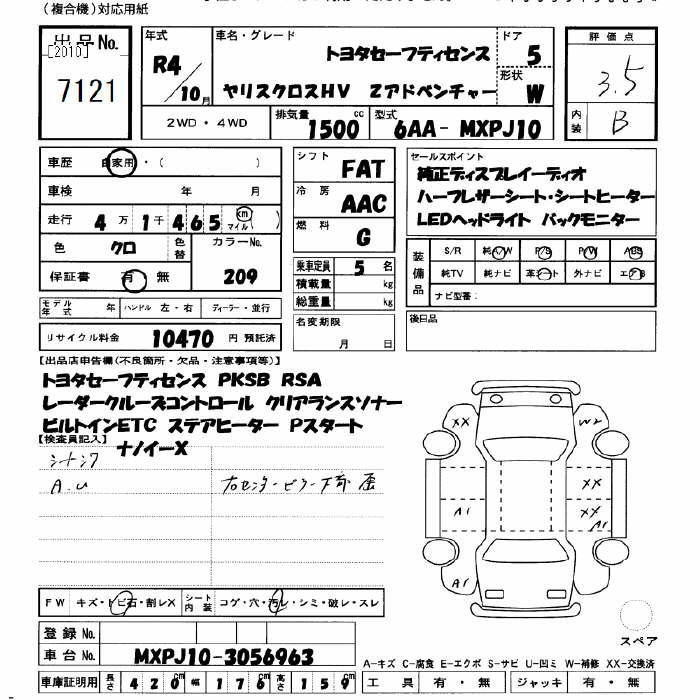 (複合機)対応用紙
出品No. 年式 車名・グレード ドア 評価点
[2010] トヨタセーフティセンス 5
7121 R4/10月 ヤリスクロスHV Zアドベンチャー 形状 W 3.5
2WD・4WD 排気量 1500 cc 型式 6AA-MXPJ10 内装 B
車歴 自家用・( ) シフト FAT セールスポイント
車検 年 月 冷房 AAC 純正ディスプレイーディオ
走行 4万1千465 km マイル( ) 燃料 G ハーフレザーシート・シートヒーター
LEDヘッドライト バックモニター
色 クロ 色替 カラーNo. 209
保証書 有・無
乗車定員 5名
積載量 kg
総重量 kg
装備品 S/R 純A/W P/S P/W ABS
純TV 純ナビ 革シート 外ナビ エアB
ナビ型番:
モデル年式 年 ハンドル 左・右 ディーラー・並行
名変期限 月 日
後日品
リサイクル料金 10470 円 預託済
【出品店申告欄(不良箇所・欠品・注意事項等)】
トヨタセーフティセンス PKSB RSA
レーダークルーズコントロール クリアランスソナー
ビルトインETC ステアヒーター Pスタート
ナノイーX
【検査員記入】
A.U
右センターピラー下部 歪
XX W2
XX
A1 XX
A1
A1
FW キズ・トビ石・割レX シート内装 コゲ・穴・汚レ・シミ・破レ・スレ
登録No.
車台No. MXPJ10-3056963
スペア
A-キズ C-腐食 E-エクボ S-サビ U-凹ミ W-補修 XX-交換済
車庫証明用 長さ 420cm 幅 176cm 高さ 159cm
工具 有・無 ジャッキ 有・無